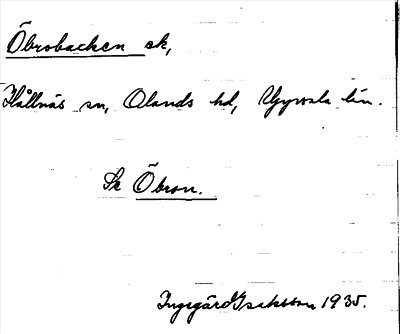 Öbrobacken sk,
Hållnäs sn, Olands hd, Uppsala län.
Se Öbron.
Ingegärd Isaksson 1935.